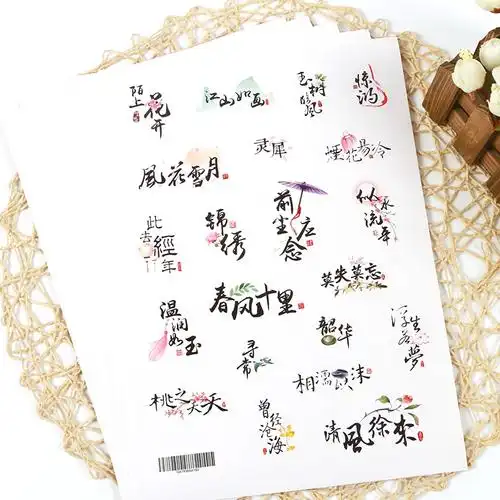 陌上
花开
江山如画
玉树
临风
惊鸿
灵犀
煙花易冷
風花雪月
前尘
忘念
似水
流年
此去
經年
锦绣
莫失莫忘
春风十里
温润
如玉
韶华
浮生
若夢
寻常
相濡以沫
桃之夭夭
曾经
沧海
清風徐來